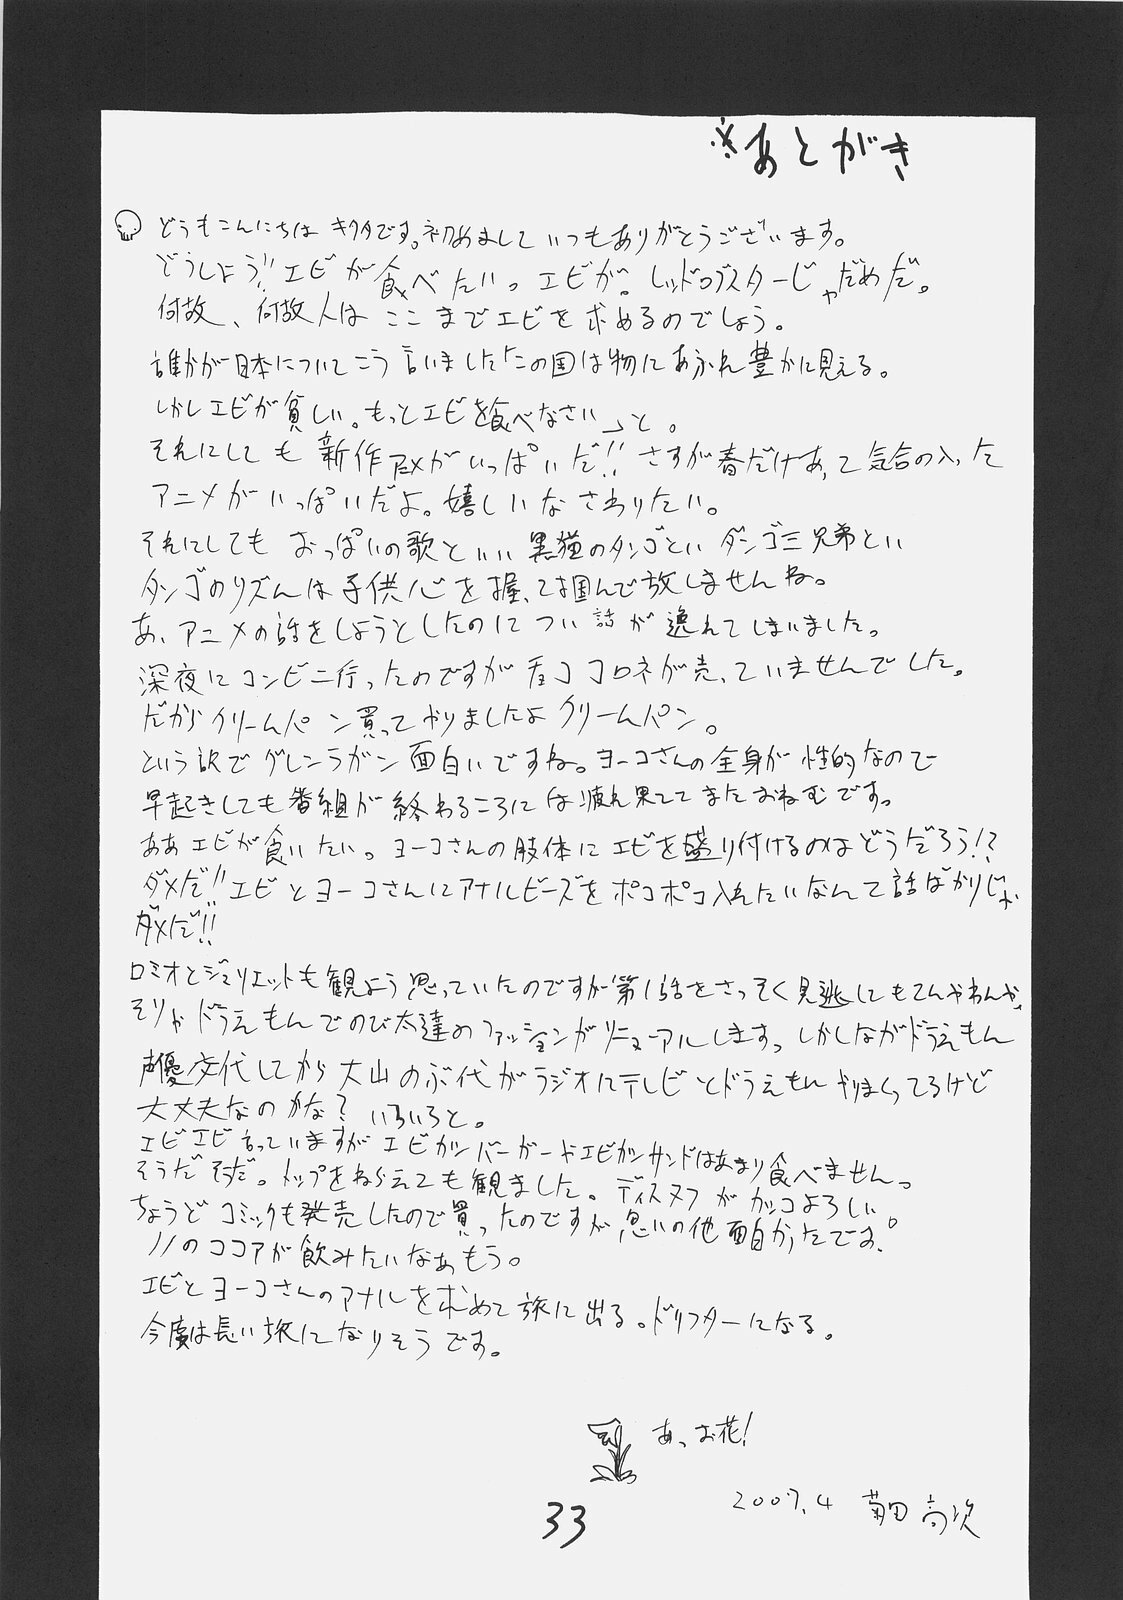 ※あとがき
どうもこんにちは キクタです。初めまして いつもありがとうございます。
どうしよう!! エビが食べたいっ エビが。レッドロブスターじゃだめだ。
何故、何故人は ここまでエビを求めるのでしょう。
誰かが日本について こう言いました「この国は物にあふれ豊かに見える。
しかしエビが貧しい。もっとエビを食べなさい」と。
それにしても 新作アニメがいっぱいだ!! さすが春だけあって気合の入った
アニメがいっぱいだよ。嬉しいな さわりたい。
それにしても おっぱいの歌といい 黒猫のタンゴといい ダンゴ三兄弟といい
タンゴのリズムは子供心を握って掴んで放しませんね。
あ、アニメの話をしようとしたのについ話が逸れてしまいました。
深夜にコンビニ行ったのですが チョココロネが売っていませんでした。
だからクリームパン買ってやりましたよ クリームパン。
という訳で グレンラガン 面白いですね。ヨーコさんの全身が性的なので
早起きしても番組が終わるころには疲れ果ててまたおねむです。
ああエビが食いたい。ヨーコさんの肢体にエビを盛り付けるのはどうだろう!?
ダメだ!! エビとヨーコさんにアナルビーズをポコポコ入れたいなんて話ばかりじゃ
ダメだ!!
ロミオとジュリエットも観よう思っていたのですが第1話をさっそく見逃してもてんやわんや、
そりゃドラえもんでのび太達のファッションがリニューアルしますっ しかしながドラえもん
声優交代してから大山のぶ代がラジオにテレビとドラえもんやりまくってるけど
大丈夫なのかな? いろいろと。
エビエビ言っていますが エビカツバーガーやエビカツサンドはあまり食べませんっ
そうだそうだ。トップをねらえても観ました。ディスヌフがカッコよろしい
ちょうどコミックも発売したので買ったのですが思いの他面白かったです。
ノノのココアが飲みたいなぁもう。
エビとヨーコさんのアナルを求めて旅に出る。ドリフターになる。
今度は長い旅になりそうです。
あっ お花!
2007.4 菊田 高次
33